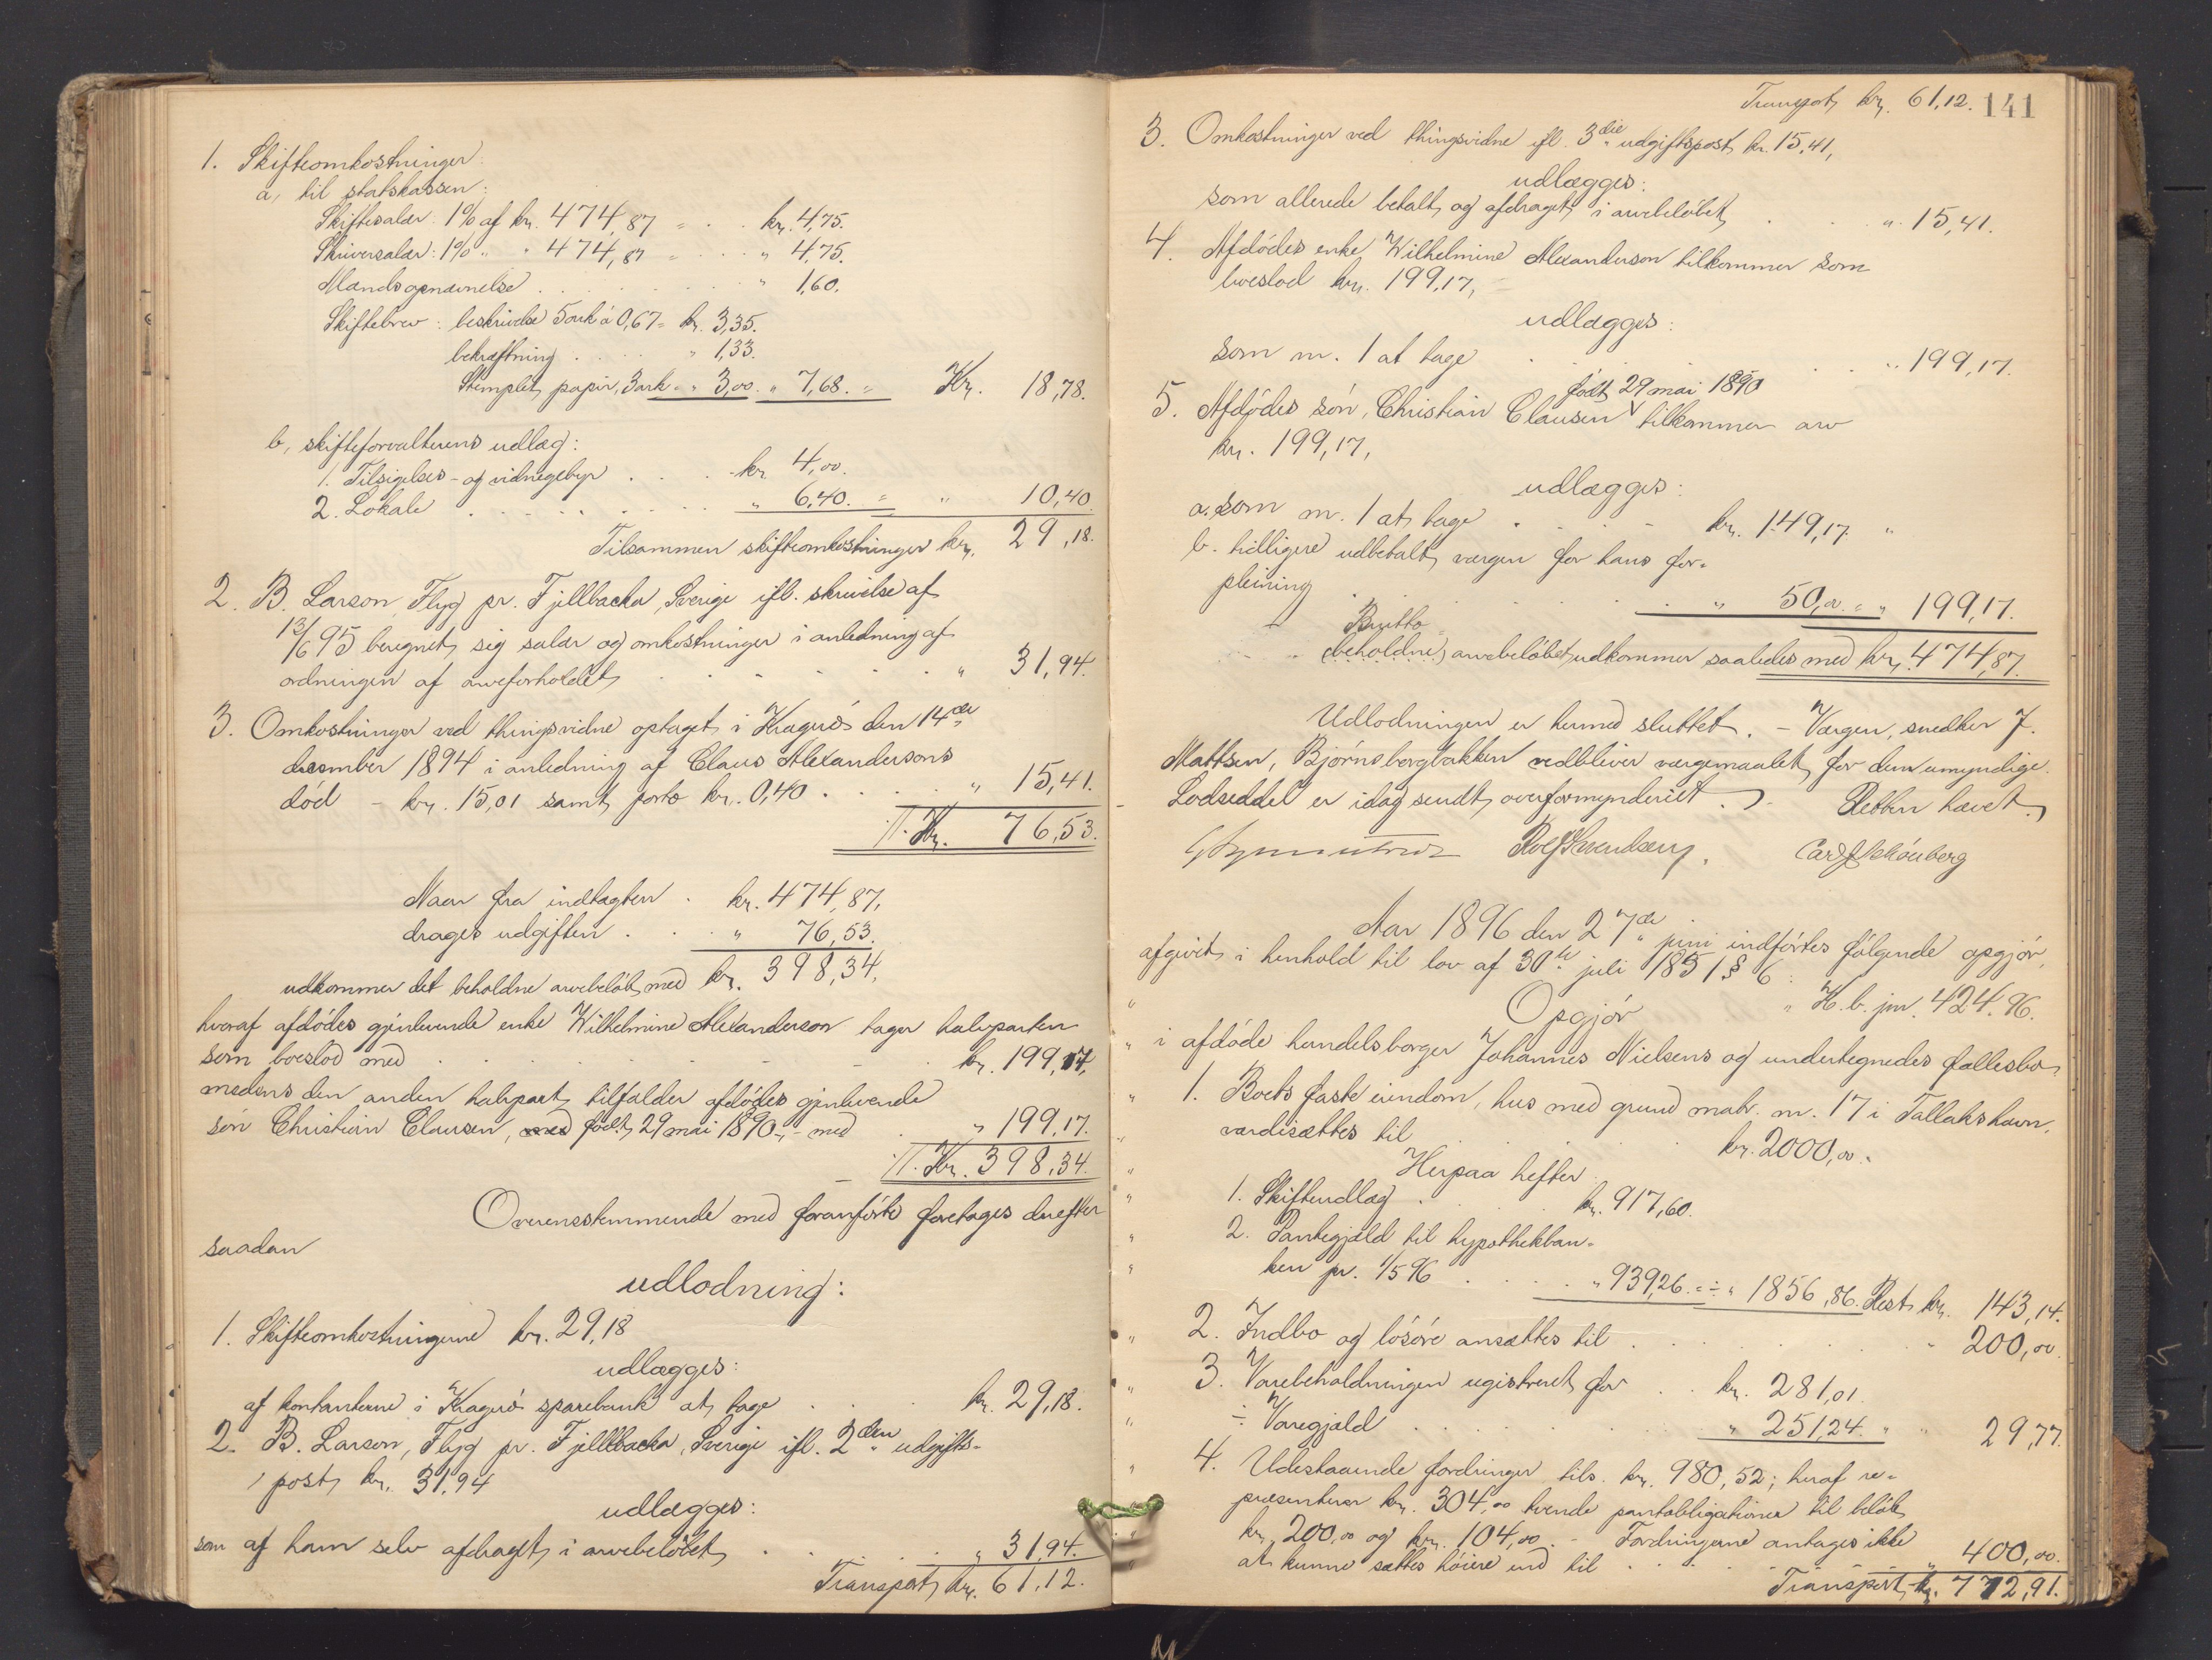 1. Skifteomkostninger:
a, til statskassen:
Skiftesalær: 1% af kr. 474,87 = . . kr. 4,75.
Skriversalær: 1% „ „ 474,87 = . . . „ 4,75.
Mændsopnævnelse . . . . . . . „ 1,60.
Skiftebrev: beskrivelse 5 ark à 0,67 = kr. 3,35.
bekræftning . . . . „ 1,33.
Stemplet papir, 3 ark = „ 3,00. „ 7,68. = Kr. 18,78.
b, skifteforvalterens udlæg:
1. Tilsigelses- og vidnegebyr . . . kr. 4,00.
2. Lokale . . . . . . . „ 6,40. = „ 10,40.
Tilsammen skifteomkostninger kr. 29,18.
2. B. Larson, Flyg pr. Fjellbacka, Sverige ifl. skrivelse af
13/6 95 beregnet sig salær og omkostninger i anledning af
ordningen af arveforholdet . . . . . . „ 31,94.
3. Omkostninger ved thingsvidne optaget i Kragerö den 14de
december 1894 i anledning af Claus Alexandersons
död - kr. 15,01 samt porto kr. 0,40 . . . . „ 15,41.
T. Kr. 76,53.
Naar fra indtægten . kr. 474,87,
drages udgiften . . . „ 76,53.
udkommer det beholdne arvebelöb med kr. 398,34,
hvoraf afdödes gjenlevende enke Wilhelmine Alexanderson tager halvparten
som boeslod med . . . . . . . kr. 199,17,
medens den anden halvpart tilfalder afdödes gjenlevende
sön Christian Clausen, med födt 29 mai 1890, - med . „ 199,17.
T. Kr. 398,34.
Overensstemmende med foranförte foretages derefter
saadan
udlodning:
1. Skifteomkostningerne kr. 29,18
udlægges:
af kontanterne i Kragerö sparebank at tage . . . kr. 29,18.
2. B. Larson, Flyg pr. Fjellbacka, Sverige ifl. 2den udgifts-
post kr. 31,94
udlægges:
som af ham selv afdraget i arvebelöbet . . . . „ 31,94.
Transport kr. 61,12.
Transport kr. 61,12. 141
3. Omkostninger ved thingsvidne ifl. 3die udgiftspost kr. 15,41,
udlægges:
som allerede betalt og afdraget i arvebelöbet . . . „ 15,41.
4. Afdödes enke, Wilhelmine Alexanderson tilkommer som
boeslod kr. 199,17,
udlægges:
som nr. 1 at tage . . . . . . „ 199,17.
födt 29 mai 1890
5. Afdödes sön, Christian Clausen tilkommer arv
kr. 199,17,
udlægges:
a. som nr. 1 at tage . . . . kr. 149,17. „
b. tidligere udbetalt værgen for hans for-
pleining . . . . . . . „ 50,00. = „ 199,17.
Brutto
(beholdne) arvebelöbet udkommer saaledes med kr. 474,87.
Udlodningen er hermed sluttet. - Værgen, snedker J.
Mattsen, Bjørnsborgbakken vedbliver værgemaalet for den umyndige.
Lodseddel er idag sendt overformynderiet. - Retten hævet.
Rolf Svendsen, Carl J. Skönberg
Aar 1896 den 27de juni indförtes fölgende opgjör,
afgivet i henhold til lov af 30te juli 1851 § 6:
„ Opgjör „ K.b. jnr. 424.96.
„ i afdöde handelsborger Johannes Nielsens og undertegnedes fællesbo,
„ 1. Boets faste eiendom, hus med grund matr. nr. 17 i Tallakshavn,
„ værdisættes til . . . . . . kr. 2000,00.
„ Herpaa hefter:
„ 1. Skifteudlæg . . . . kr. 917,60.
„ 2. Pantegjæld til hypothekban-
„ ken pr. 1/5 96 . . . . „ 939,26. = ÷ „ 1856,86. Rest kr. 143,14.
„ 2. Indbo og lösöre ansættes til . . . . . . „ 200,00.
„ 3. Varebeholdningen registreret for . . kr. 281,01.
„ ÷ Varegjæld . . . . . . „ 251,24. „ „ 29,77.
„ 4. Udestaaende fordringer tils. kr. 980,52; heraf re-
præsenterer kr. 304,00 tvende pantobligationer til beløb
„ kr. 200,00 og kr. 104,00. - Fordringerne antages ikke
at kunne sættes höiere end til . . . . . „ 400,00.
Transport kr. 772,91.